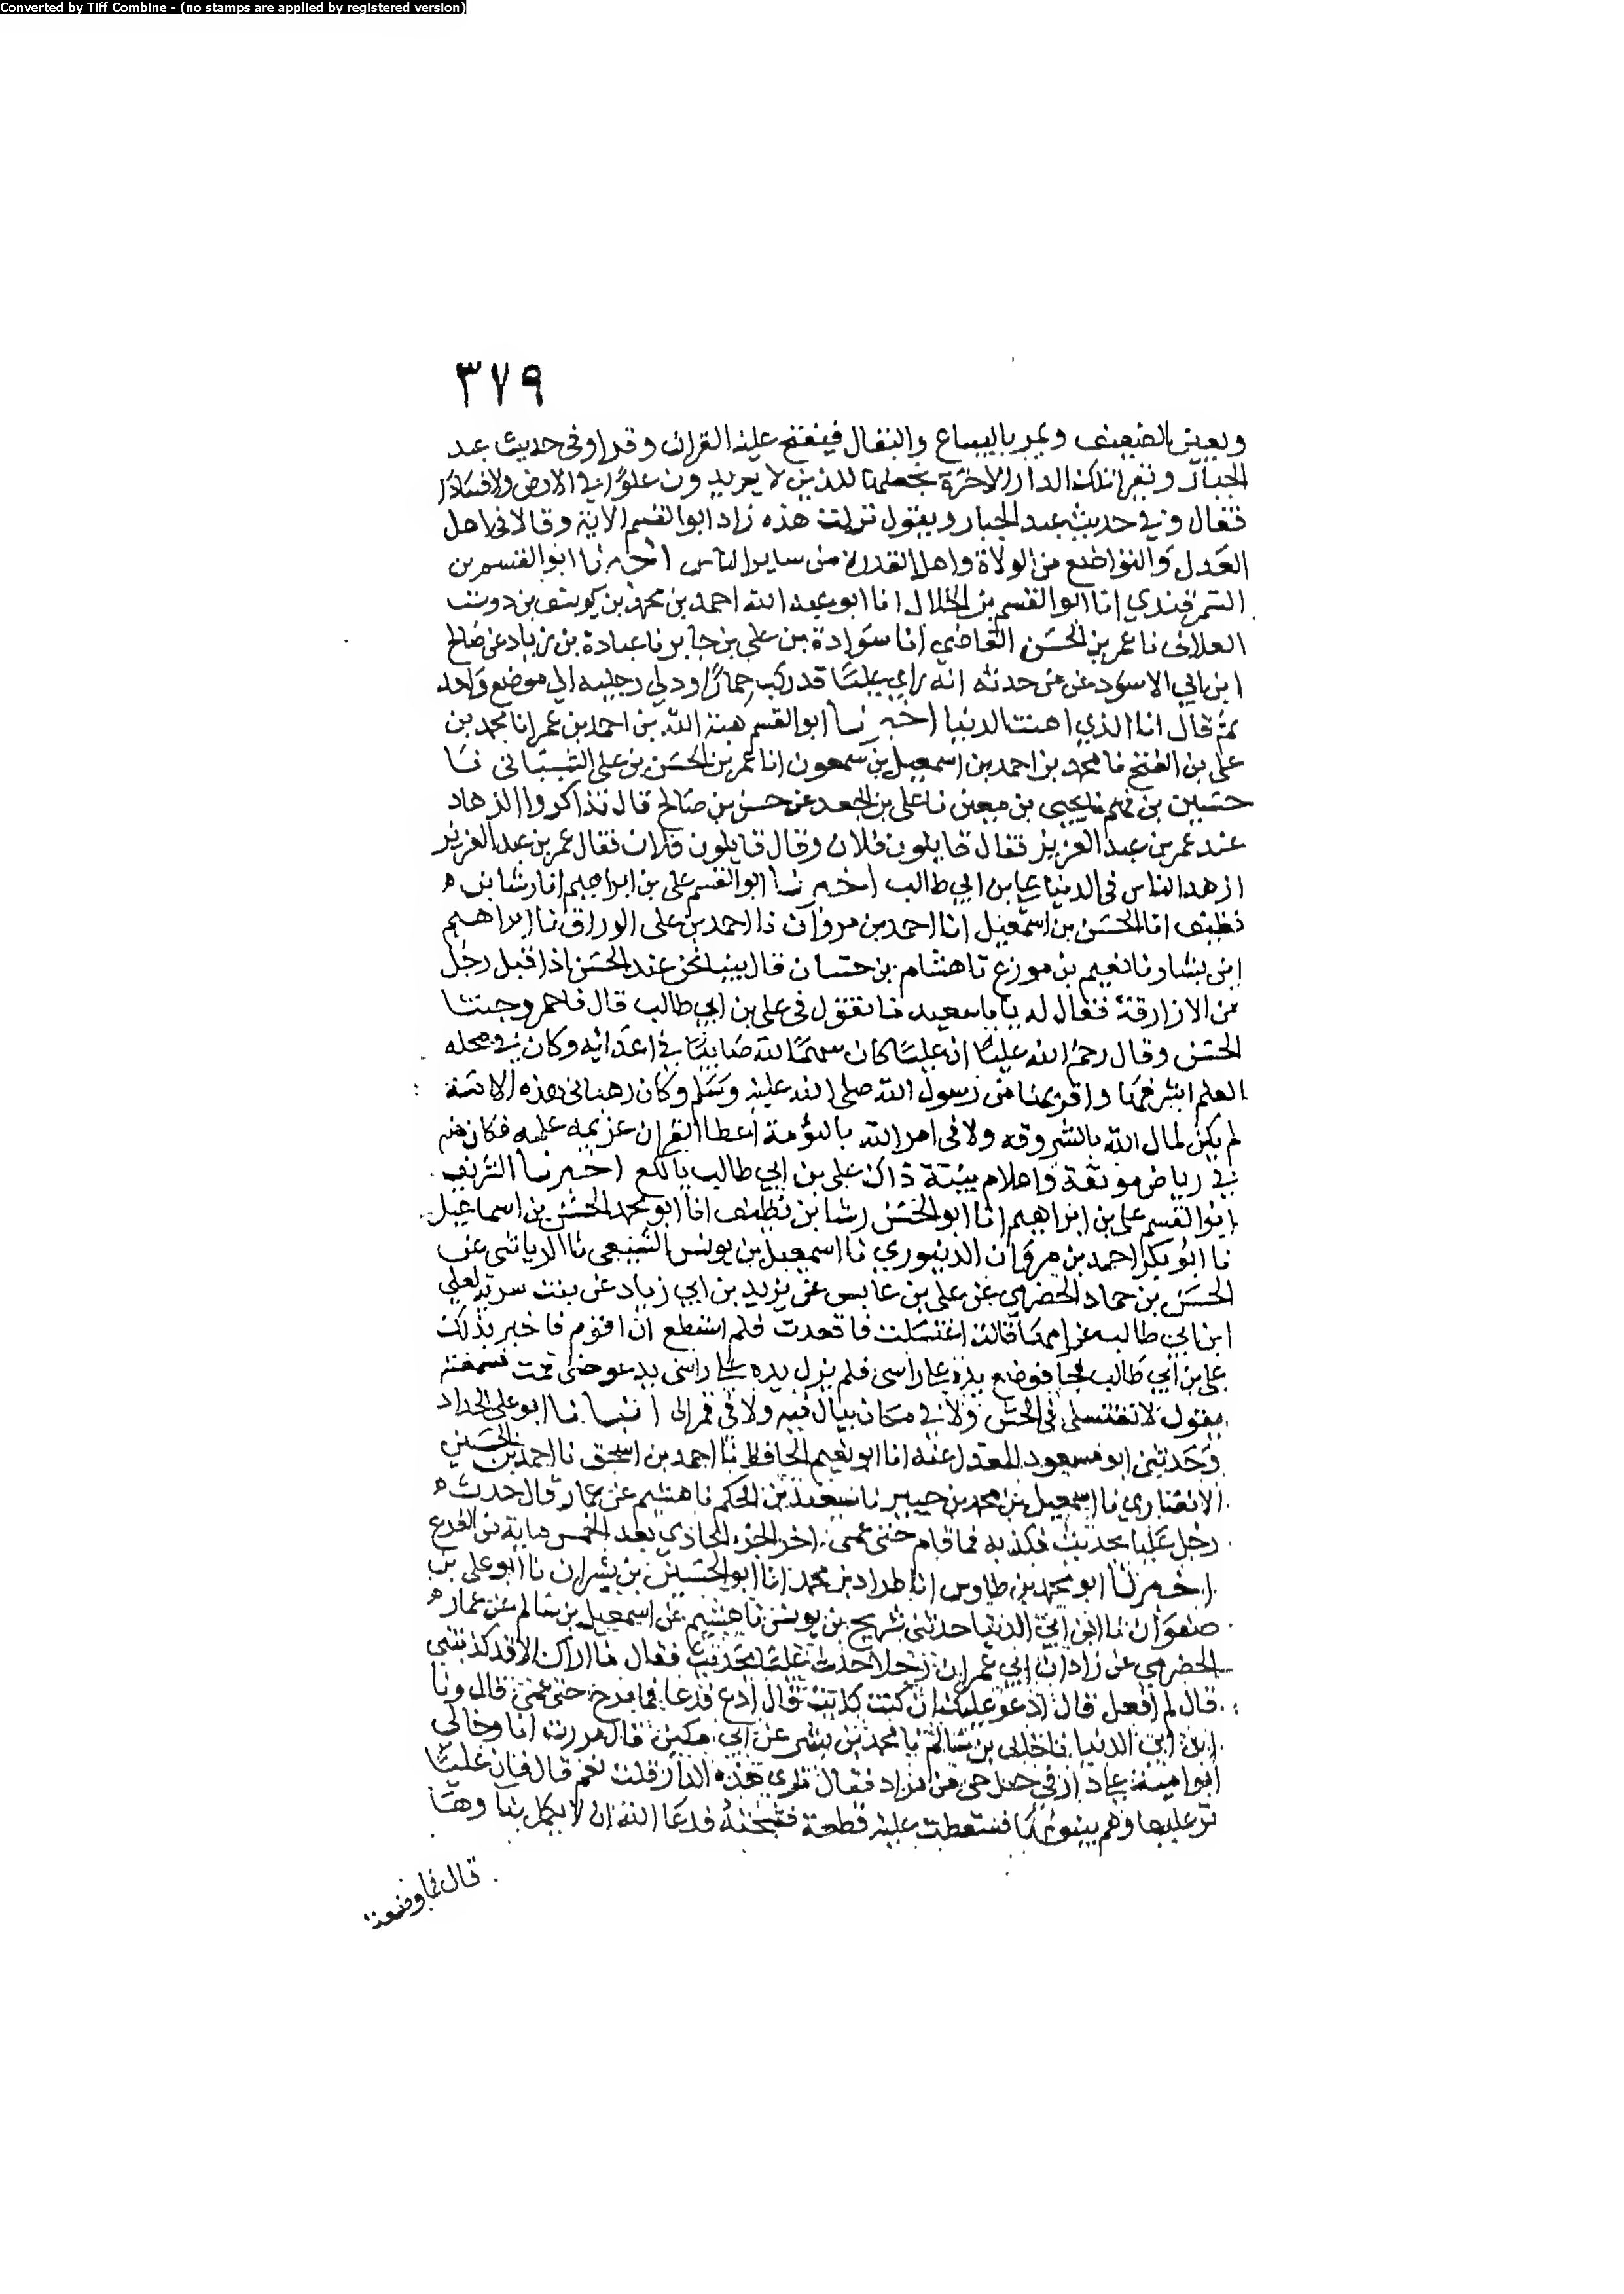 Converted by Tiff Combine - (no stamps are applied by registered version)
٣٧٩
ويعين الضعيف ويمر بالبياع والبقال فيفتح عليه القران وقراوفى حديث عبد
الجبار ونقرا تلك الدار الاخرة نجعلها للذين لا يريدون علوًا في الارض ولا فسادًا
فقال وفي حديث عبد الجبار ويقول نزلت هذه زاد ابو القسم الاية وقالا في اهل
العدل والتواضع من الولاة واهل القدرة من ساير الناس اخبرنا ابو القسم بن
السمرقندي انا ابو القسم بن الخلال انا ابو عبد الله احمد بن محمد بن يوسف بن دوست
العلاف نا عمر بن الحسن القاضي انا سوادة بن علي بن جابر نا عبادة بن زياد عن صالح
ابن ابي الاسود عن من حدثه انه راي عليًا قد ركب حمارًا ودلي رجليه الي موضع واحد
ثم قال انا الذي اهنت الدنيا اخبرنا ابو القسم هبة الله بن احمد بن عمر انا محمد بن
علي بن الفتح نا محمد بن احمد بن اسمعيل بن سمعون انا عمر بن الحسن بن علي الشيباني نا
حسين بن فهم نا يحيى بن معين نا علي بن الجعد عن حسن بن صالح قال تذاكروا الزهاد
عند عمر بن عبد العزيز فقال قايلون فلان وقال قايلون فلان فقال عمر بن عبد العزيز
ازهد الناس في الدنيا علي بن ابي طالب اخبرنا ابو القسم علي بن ابراهيم انا رشا بن ه
نظيف انا الحسن بن اسمعيل انا احمد بن مروان نا احمد بن على الوراق نا ابراهيم
ابن بشار نا نعيم بن مورع نا هشام بن حسان قال بينا نحن عند الحسن اذ اقبل رجل
من الازارقة فقال له يا باسعيد ما تقول في علي بن ابي طالب قال فاحمر وجنتا
الحسن وقال رحم الله عليًا ان عليًا كان سهمًا لله صايبًا في اعدائه وكان في محله
العلم اشرفها واقربها من رسول الله صلى الله عليه وسلم وكان رهباني هذه الامة
لم يكن لمال الله بالسروقه ولا في امر الله بالنومة اعطا القران عزيمه علمه فكان منه
في رياض مونقة واعلام بينة ذاك علي بن ابي طالب يالكع اخبرنا الشريف
ابو القسم علي بن ابراهيم انا ابو الحسن رشا بن نظيف انا ابو محمد الحسن بن اسماعيل
نا ابو بكر احمد بن مروان الدينوري نا اسمعيل بن يونس الشيعي نا الرياشي عن
الحسن بن حماد الحضرمي عن علي بن عابس عن يزيد بن ابي زياد عن بنت سرية لعلي
ابن ابي طالب عن امها قالت اغتسلت فاقعدت فلم استطع ان اقوم فاخبر بذلك
علي بن ابي طالب فجا فوضع يده علي راسي فلم يزل يده علي راسي يدعو حتى قمت فسمعته
يقول لا تغتسلي في الحش ولا في مكان يبال فيه ولا في قمرا انبانا ابو علي الحداد
وحدثني ابو مسعود المعدل عنه انا ابو نعيم الحافظ نا احمد بن اسحق نا احمد بن الحسين
الانصاري نا اسمعيل بن محمد بن نا سعيد بن الحكم نا هشيم عن عمار قال حدث ه
رجل عليا بحديث فكذبه فما قام حتى عمى اخر الجزء الحادي بعد الخمس ماية من الفرع
اخبرنا ابو محمد بن طاوس انا طراد بن محمد انا ابو الحسين بن بشران نا ابو علي بن
صفوان نا ابن ابي الدنيا حدثني شريح بن يونس نا هشيم عن اسمعيل بن سالم عن عمار ه
الحضرمي عن زاذان ابي عمر ان رجلا حدث عليًا بحديث فقال ما اراك الا قد كذبتني
قال لم افعل قال ادعو عليك ان كنت كذبت قال ادع فدعا فما برح حتى عمى قال ونا
ابن ابي الدنيا نا خلف بن سالم نا محمد بن بشر عن ابي مكين قال مررت انا وخالي
ابو امية علي دار في حل حي من مراد فقال تري هذه الدار قلت نعم قال فان عليًا
مر عليها وهم يبنونها فسقطت عليه قطعة فشجته فدعا الله ان لا يكمل بناوها
قال فما وضعت